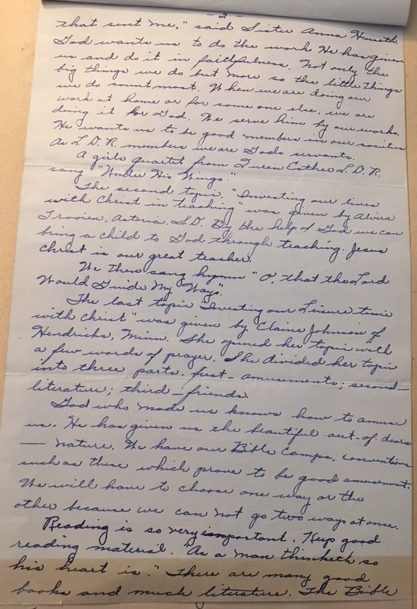 - 3 -
that sent me," said Sister Anna Huseth
God wants us to do the work He has given
us and do it in faithfulness. Not only the
big things we do but more so the little things
we do count most. When we are doing our
work at home or for some one else, we are
doing it for God. We serve him by our works.
He wants us to be good members in our societies
As L.D.R. members we are Gods servants.
A girls quartet from Queen Esther L.D.R.
sang "Under His Wings."
The second topic, "Investing our lives
with Christ in teaching" was given by Alvina
Trooien, Astoria, S.D. By the help of God we can
bring a child to God through teaching. Jesus
Christ is our great teacher.
We then sang hymn "O, that the Lord
Would Guide My Ways".
The last topic "Investing our Leisure time
with Christ" was given by Elaine Johnson of
Hendricks, Minn. She opened her topic with
a few words of prayer. She divided her topic
into three parts. first - amusements; second -
literature; third - friends.
God who made us knows how to amuse
us. He has given us the beautiful out-of-doors
— nature. We have our Bible Camps, conventions
such as these which prove to be good amusement.
We will have to choose one way or the
other because we can not go two ways at once.
Reading is so very important. Keep good
reading material. As a man thinketh so
his heart is." There are many good
books and much literature. The Bible